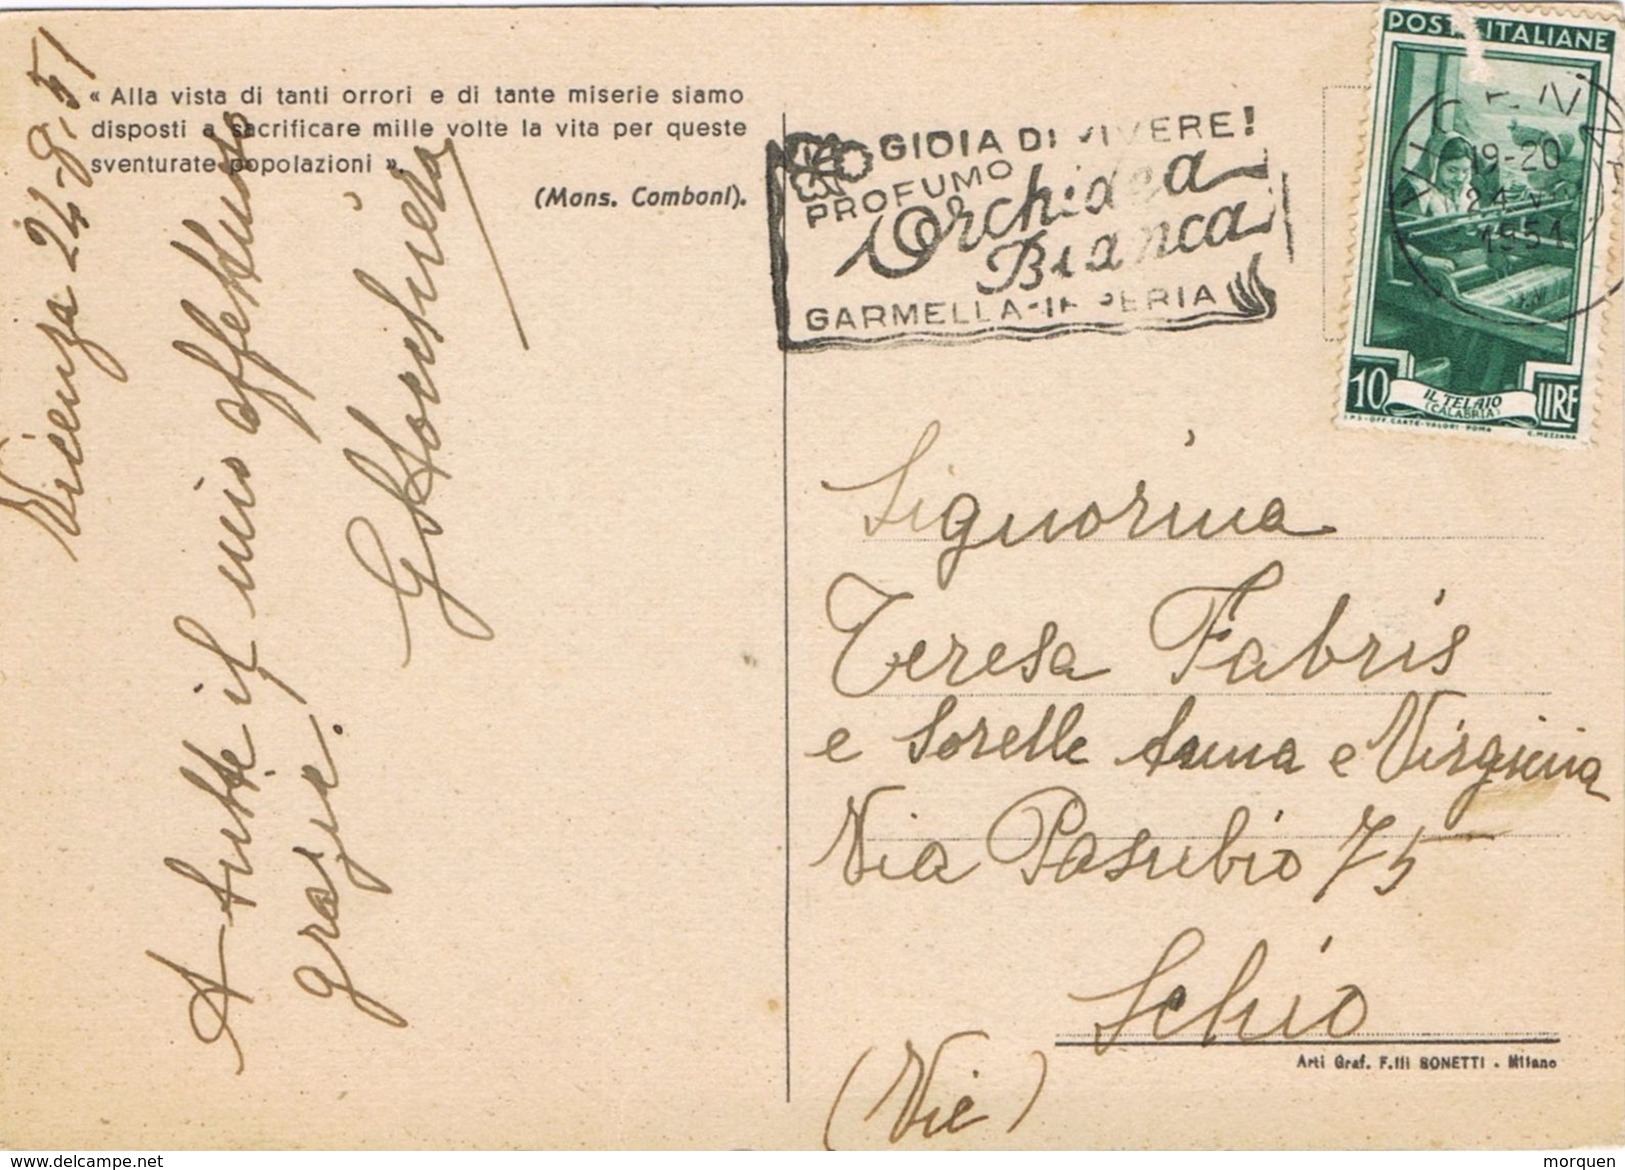 « Alla vista di tanti orrori e di tante miserie siamo
disposti a sacrificare mille volte la vita per queste
sventurate popolazioni ».
(Mons. Comboni).
Vicenza 24-8-51
A tutte il mio affettuoso
grazie.
GIOIA DI VIVERE!
PROFUMO
Orchidea
Bianca
GARMELLA-IMPERIA
POSTE ITALIANE
19-20
1951
10 LIRE
IL TELAIO
(CALABRIA)
I.P.S.-OFF. CARTE-VALORI-ROMA
C. MEZZANA
Signorina
Teresa Fabris
e Sorelle Anna e Virginia
Via Pasubio 75
Schio
(Vie)
Arti Graf. F.lli BONETTI - Milano
www.delcampe.net
morquen